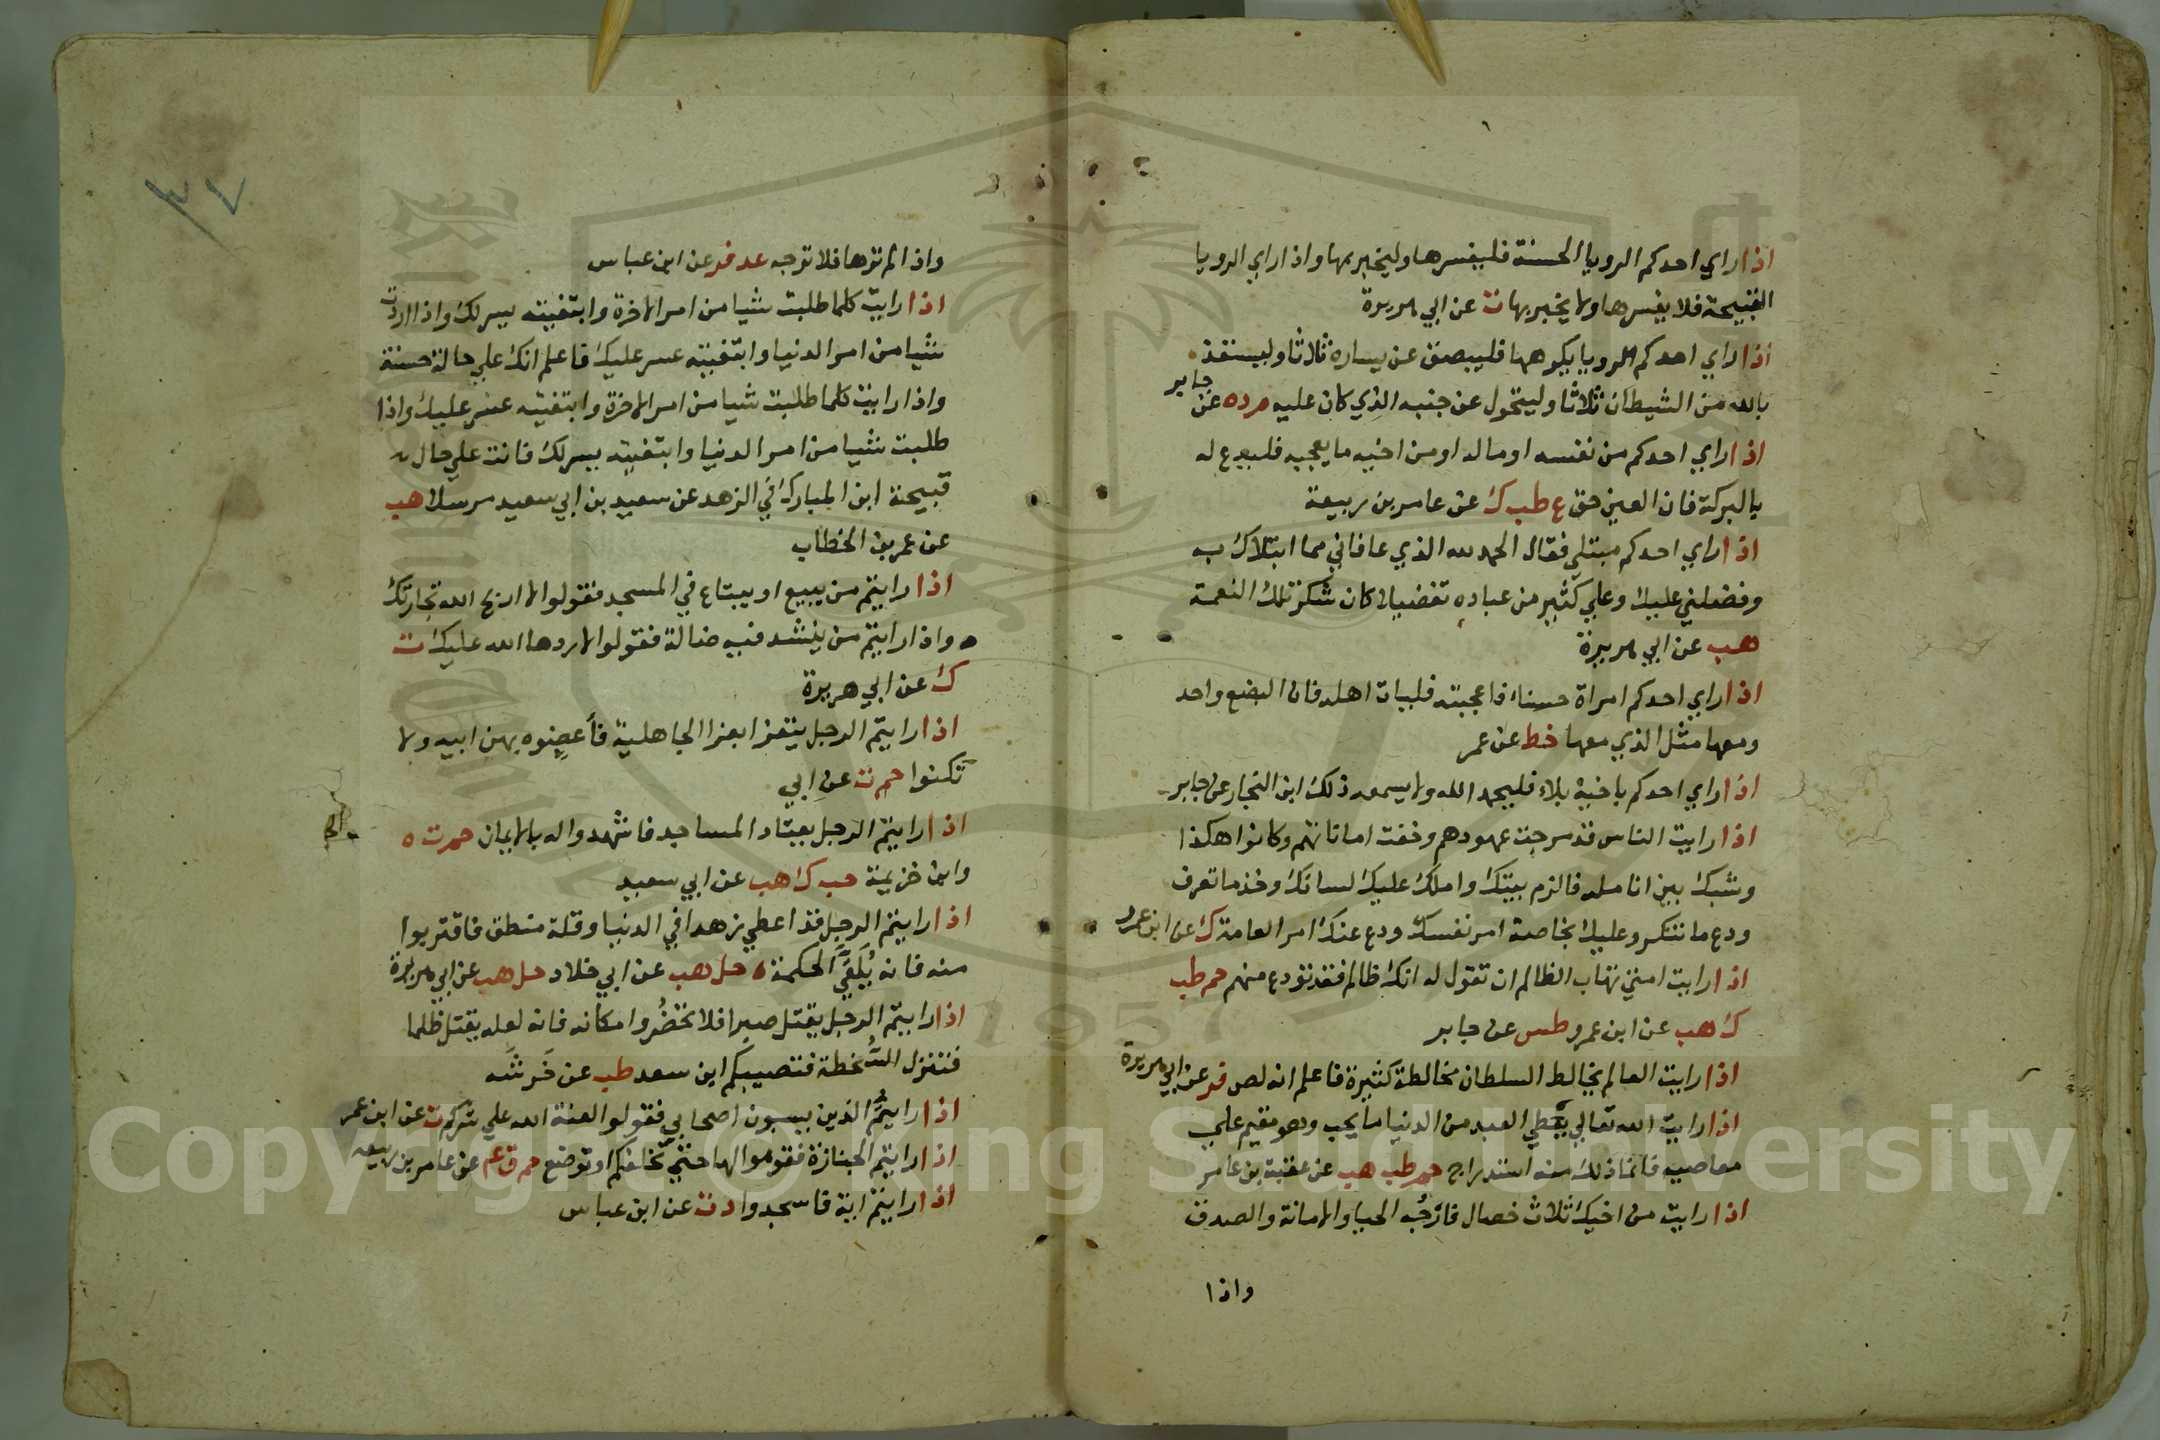 اذا راي احدكم الرويا الحسنة فليفسرها وليخبر بها واذا راي الرويا
القبيحة فلا يفسرها ولا يخبر بها ت عن ابي هريرة
اذا راي احدكم الرويا يكرهها فليبصق عن يساره ثلاثا وليستعذ
بالله من الشيطان ثلاثا وليتحول عن جنبه الذي كان عليه م د ه عن جابر
اذا راي احدكم من نفسه او ماله او من اخيه ما يعجبه فليدع له
بالبركة فان العين حق ع طب ك عن عامر بن ربيعة
اذا راي احدكم مبتلي فقال الحمد لله الذي عافاني مما ابتلاك به
وفضلني عليك وعلي كثير من عباده تفضيلا كان شكر تلك النعمة
هب عن ابي هريرة
اذا راي احدكم امراة حسناء فاعجبته فليات اهله فان البضع واحد
ومعها مثل الذي معها خط عن عمر
اذا راي احدكم باخيه بلاء فليحمد الله ولا يسمعه ذلك ابن النجار عن جابر
اذا رايت الناس قد مرجت عهودهم وخفت اماناتهم وكانوا هكذا
وشبك بين انامله فالزم بيتك واملك عليك لسانك وخذ ما تعرف
ودع ما تنكر وعليك بخاصة امر نفسك ودع عنك امر العامة ك عن ابن عمرو
اذا رايت امتي تهاب الظالم ان تقول له انك ظالم فقد تودع منهم حم طب
ك هب عن ابن عمرو طس عن جابر
اذا رايت العالم يخالط السلطان مخالطة كثيرة فاعلم انه لص فر عن ابي هريرة
اذا رايت الله تعالي يعطي العبد من الدنيا ما يحب وهو مقيم علي
معاصيه فانما ذلك منه استدراج حم طب هب عن عقبة بن عامر
اذا رايت من اخيك ثلاث خصال فارجه الحيا والامانة والصدق
واذا
٣٧
واذا لم ترها فلا ترجه عد فر عن ابن عباس
اذا رايت كلما طلبت شيا من امر الاخرة وابتغيته يسر لك واذا اردت
شيا من امر الدنيا وابتغيته عسر عليك فاعلم انك علي حالة حسنة
واذا رايت كلما طلبت شيا من امر الاخرة وابتغيته عسر عليك واذا
طلبت شيا من امر الدنيا وابتغيته يسر لك فانت علي حال
قبيحة ابن المبارك في الزهد عن سعيد بن ابي سعيد مرسلا هب
عن عمر بن الخطاب
اذا رايتم من يبيع او يبتاع في المسجد فقولوا لا اربح الله تجارتك
واذا رايتم من ينشد فيه ضالة فقولوا لا ردها الله عليك ت
ك عن ابي هريرة
اذا رايتم الرجل يتعزا بعزا الجاهلية فأعضوه بهن ابيه ولا
تكنوا حم ت عن ابي
اذا رايتم الرجل يعتاد المساجد فاشهدوا له بالايمان حم ت ه
وابن خزيمة حب ك هب عن ابي سعيد
اذا رايتم الرجل قد اعطي زهدا في الدنيا وقلة منطق فاقتربوا
منه فانه يُلَقَّي الحكمة ه حل هب عن ابي خلاد حل هب عن ابي هريرة
اذا رايتم الرجل يقتل صبرا فلا تحضُروا مكانه فانه لعله يقتل ظلما
فتنزل السُّخطة فتصيبكم ابن سعد طب عن خَرشَه
اذا رايتُم الذين يسبون اصحابي فقولوا لعنة الله علي شركم ت عن ابن عمر
اذا رايتم الجنازة فقوموا لها حتي تخلفكم او توضع حم ق عم عن عامر بن ربيعه
اذا رايتم اية فاسجدوا د ت عن ابن عباس